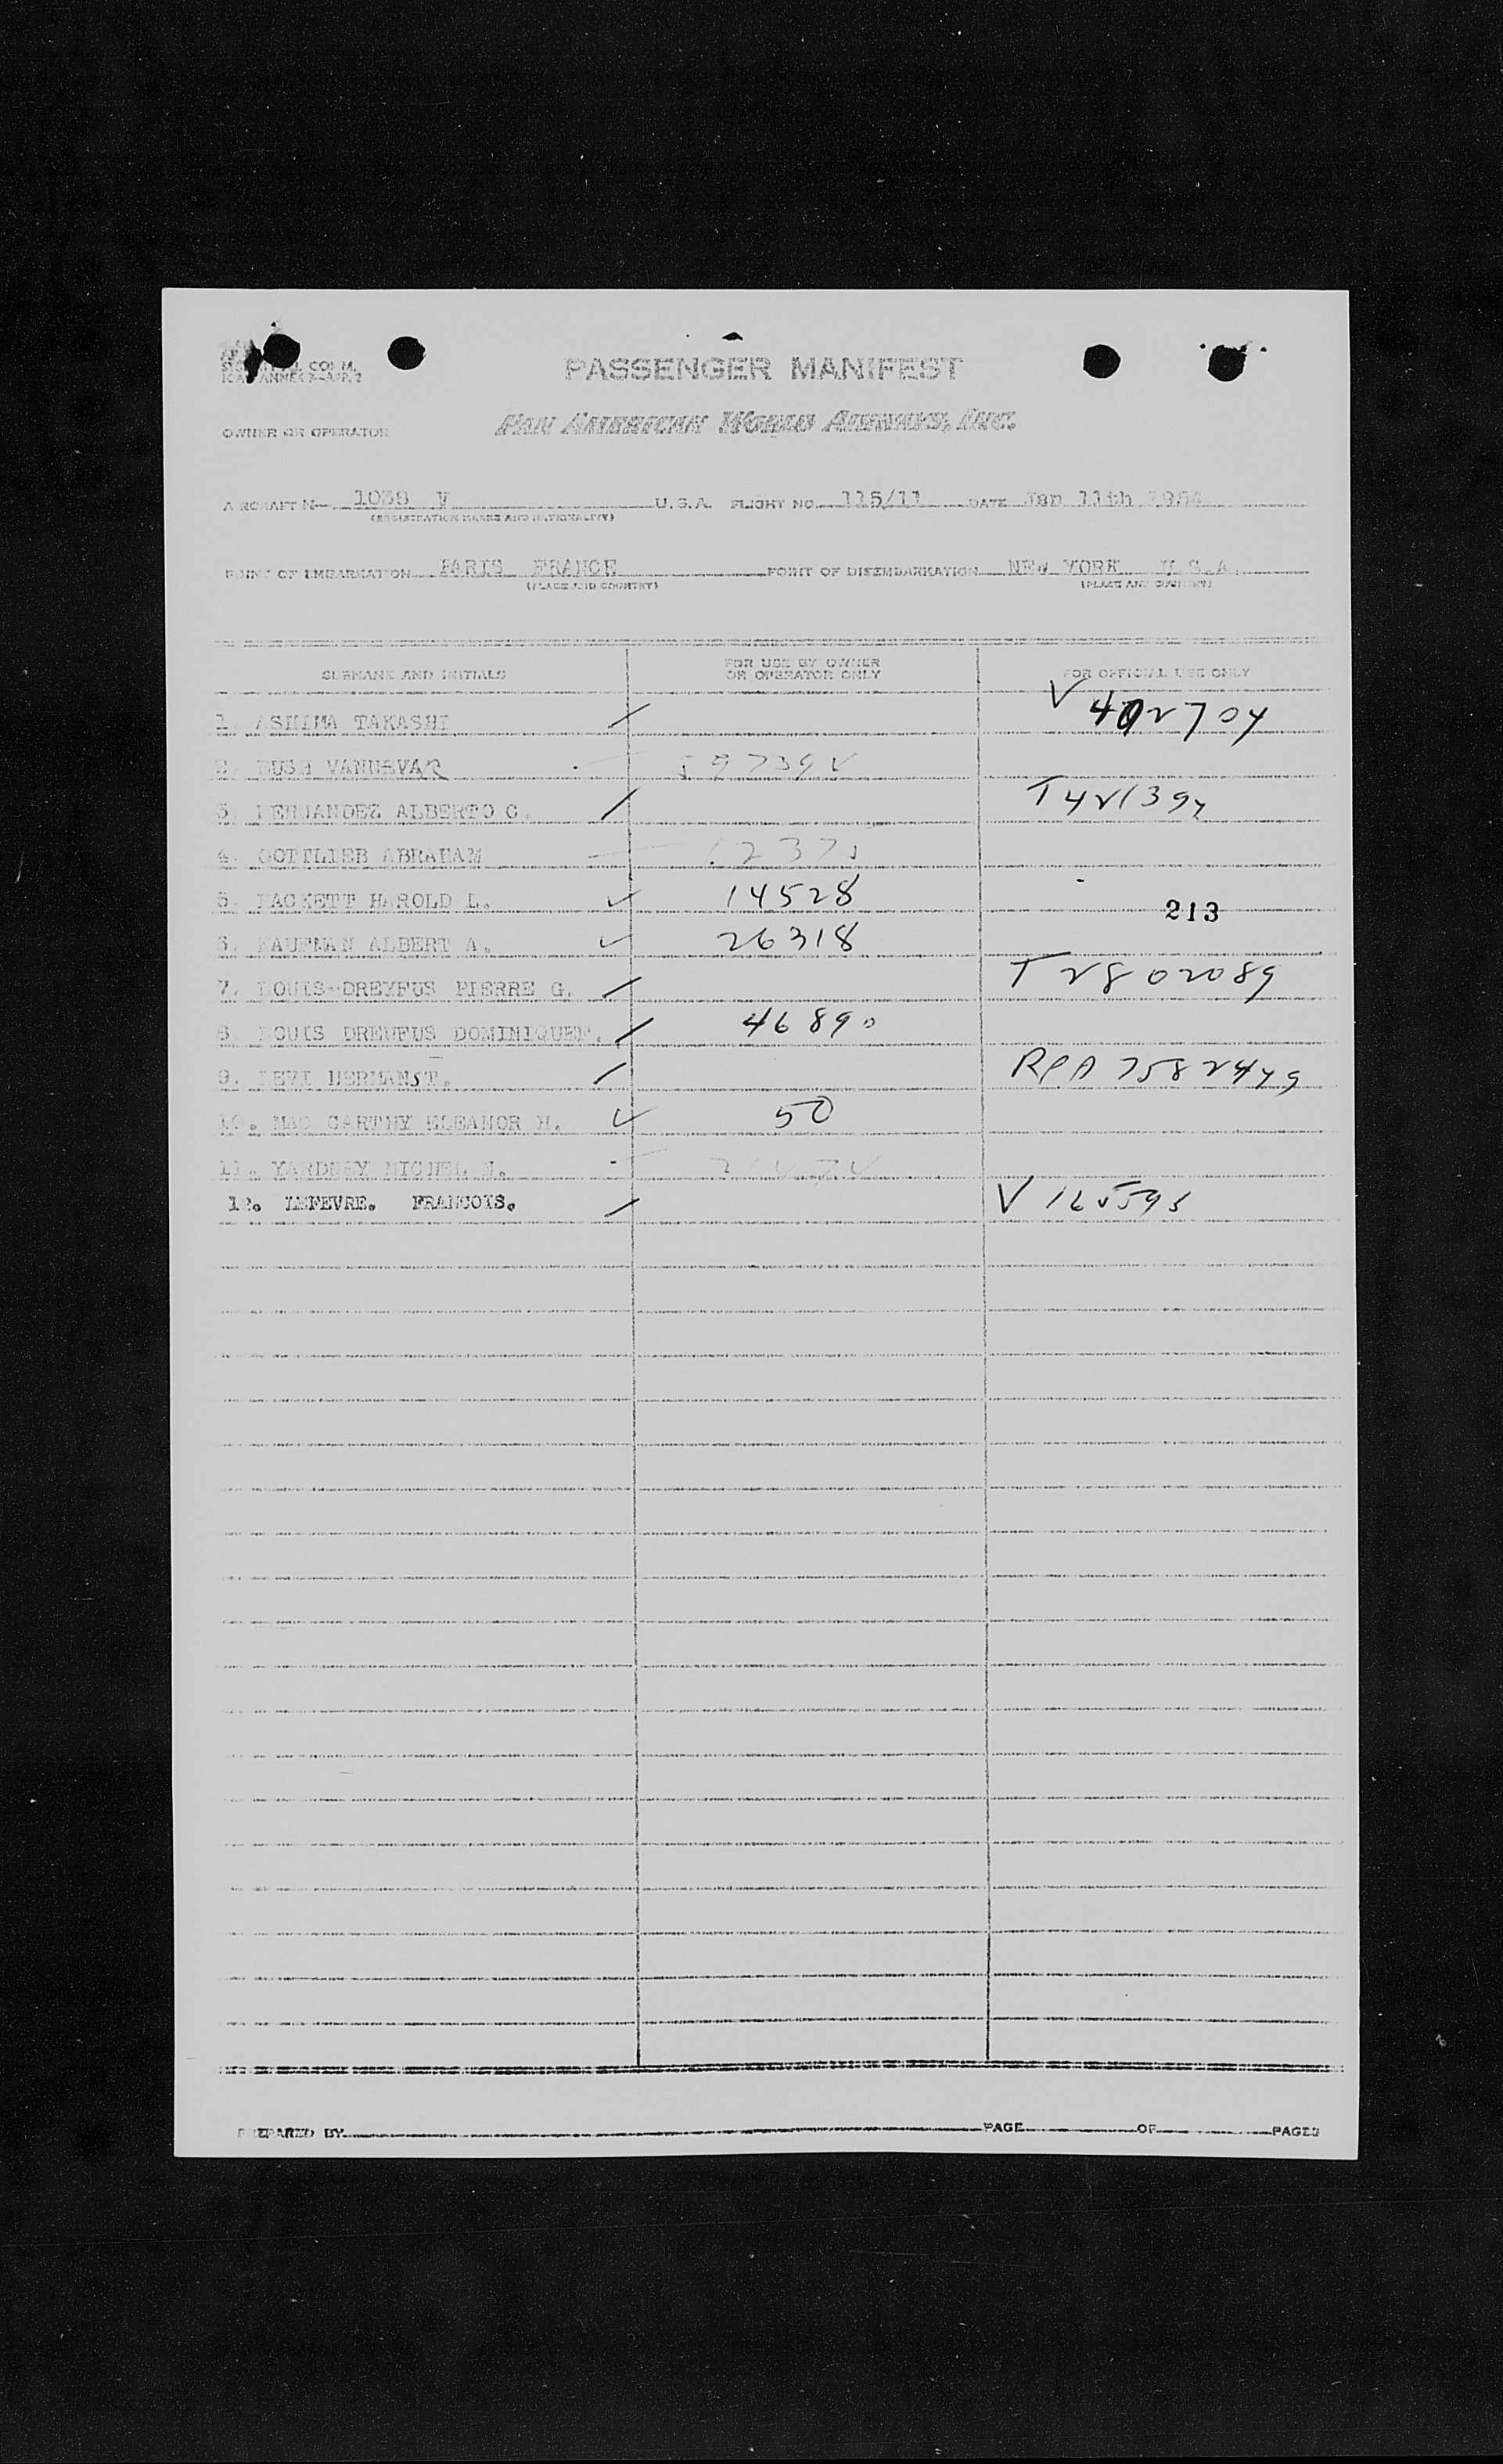 COMM.
ICAO ANNEX 9-APP. 2
PASSENGER MANIFEST
OWNER OR OPERATOR
PAN AMERICAN WORLD AIRWAYS, INC.
AIRCRAFT N 1038 V U.S.A. FLIGHT NO. 115/11 DATE Jan 11th 1954
(REGISTRATION MARKS AND NATIONALITY)
POINT OF EMBARKATION PARIS FRANCE POINT OF DISEMBARKATION NEW YORK U.S.A.
(PLACE AND COUNTRY) (PLACE AND COUNTRY)
SURNAME AND INITIALS FOR USE BY OWNER OR OPERATOR ONLY FOR OFFICIAL USE ONLY
1. ASHIMA TAKASHI V 402704
2. BUSH VANNEVAR 59739
3. FERNANDEZ ALBERTO C. T 421394
4. GOTTLIEB ABRAHAM
5. HACKETT HAROLD L. 14528
213
6. KAUFMAN ALBERT A. 26318
7. LOUIS-DREYFUS PIERRE G. T 2802089
8. LOUIS DREUFUS DOMINIQUE F. 46890
9. LEVI HERMANST. RPA 7582449
10. MAC CARTHY ELEANOR H. 50
11. YARDNEY MICHEL N.
12. LEFEVRE. FRANCOIS. V 165595
PREPARED BY PAGE OF PAGES